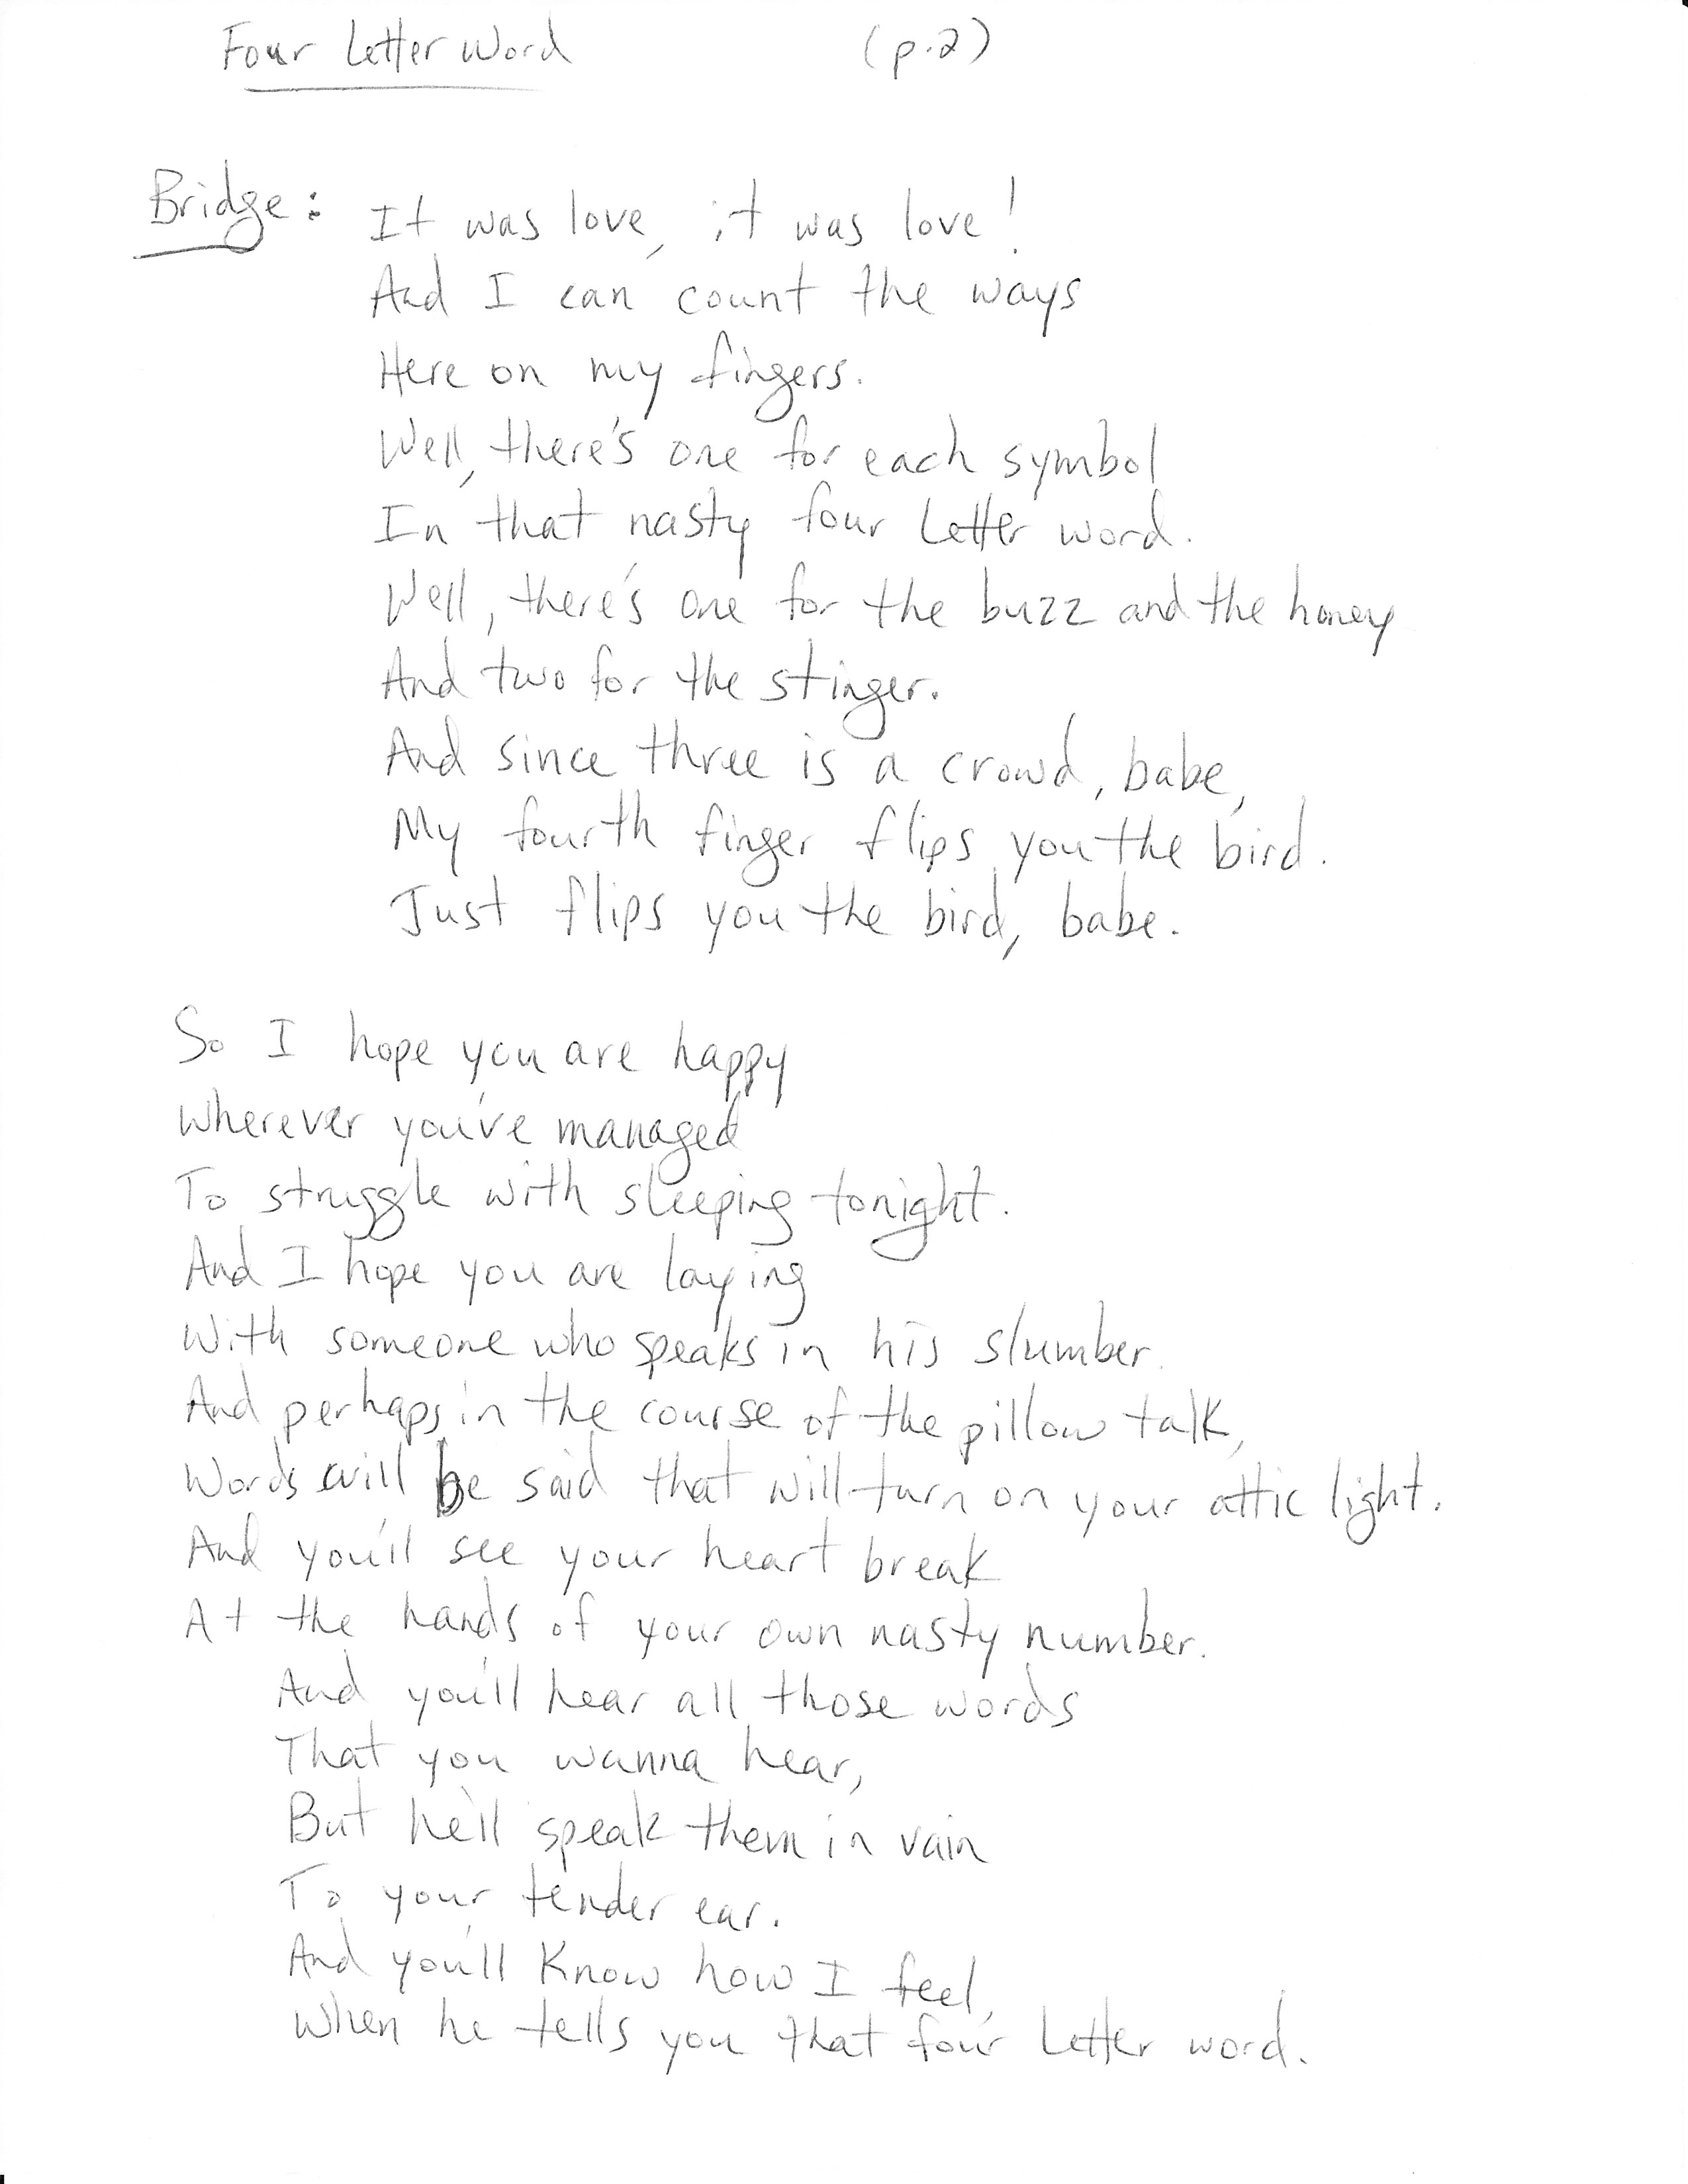 Four Letter Word (p.2)
Bridge: It was love, it was love!
And I can count the ways
Here on my fingers.
Well, there's one for each symbol
In that nasty four letter word.
Well, there's one for the buzz and the honey
And two for the stinger.
And since three is a crowd, babe,
My fourth finger flips you the bird.
Just flips you the bird, babe.
So I hope you are happy
Wherever you've managed
To struggle with sleeping tonight.
And I hope you are laying
With someone who speaks in his slumber.
And perhaps, in the course of the pillow talk,
Words will be said that will turn on your attic light.
And you'll see your heart break
At the hands of your own nasty number.
And you'll hear all those words
That you wanna hear,
But he'll speak them in vain
To your tender ear.
And you'll know how I feel,
When he tells you that four letter word.